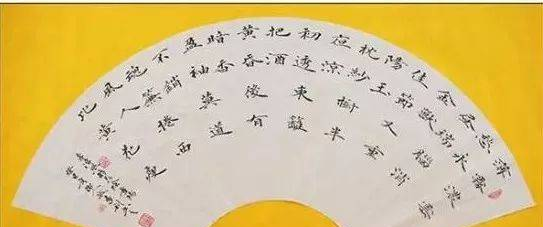 薄霧濃雲
愁永
晝瑞腦消
金獸
佳節又重
陽玉
枕紗櫥半
夜涼
初透東籬
把酒
黃昏後有
暗香
盈袖莫道
不銷
魂簾捲西
風人
比黃花瘦